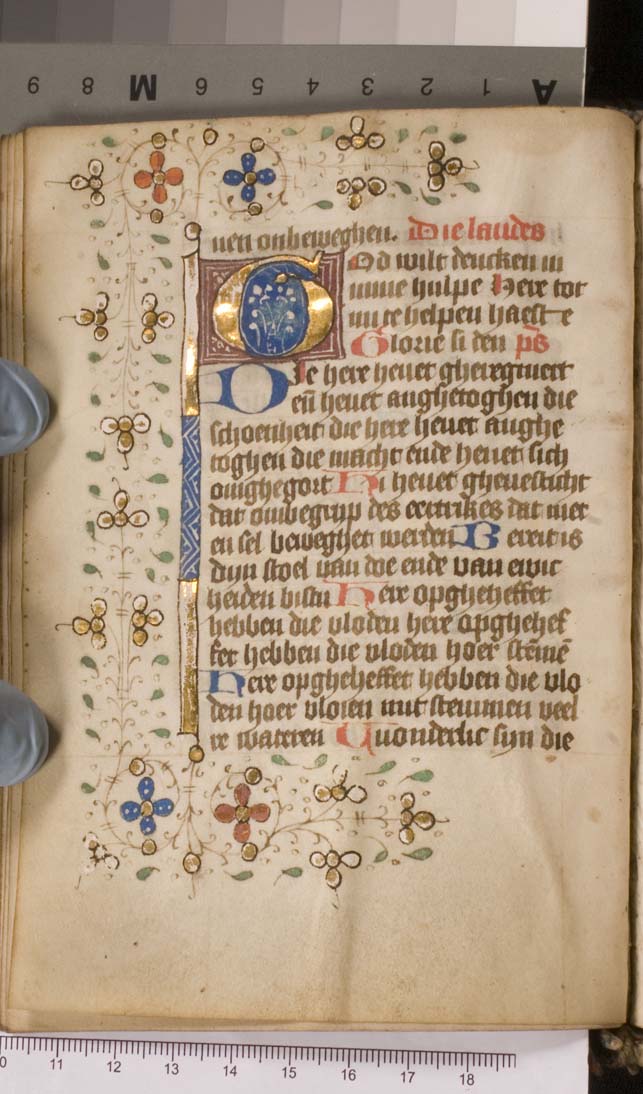 9 8 M 6 5 4 3 2 1 A
uen onbeweghen. Die laudes
God wilt dencken in
mine hulpe Here tot
mi te helpen haeste
Glorie si den ps̄
Die here heuet gheregniert
eñ heuet anghetoghen die
schoenheit die here heuet anghe
toghen die macht ende heuet sich
omghegort Hi heuet gheuesticht
dat ombegrijp des ertrikes dat niet
en sel beweghet werden Bereit is
dijn stoel van doe ende van ewic
heiden bistu Here opgheheffet
hebben die vloden here opghehef
fet hebben die vloden hoer stēmē
Here opgheheffet hebben die vlo
den hoer vloien mit stemmen veel
re wateren Wonderlic sijn die
0 11 12 13 14 15 16 17 18